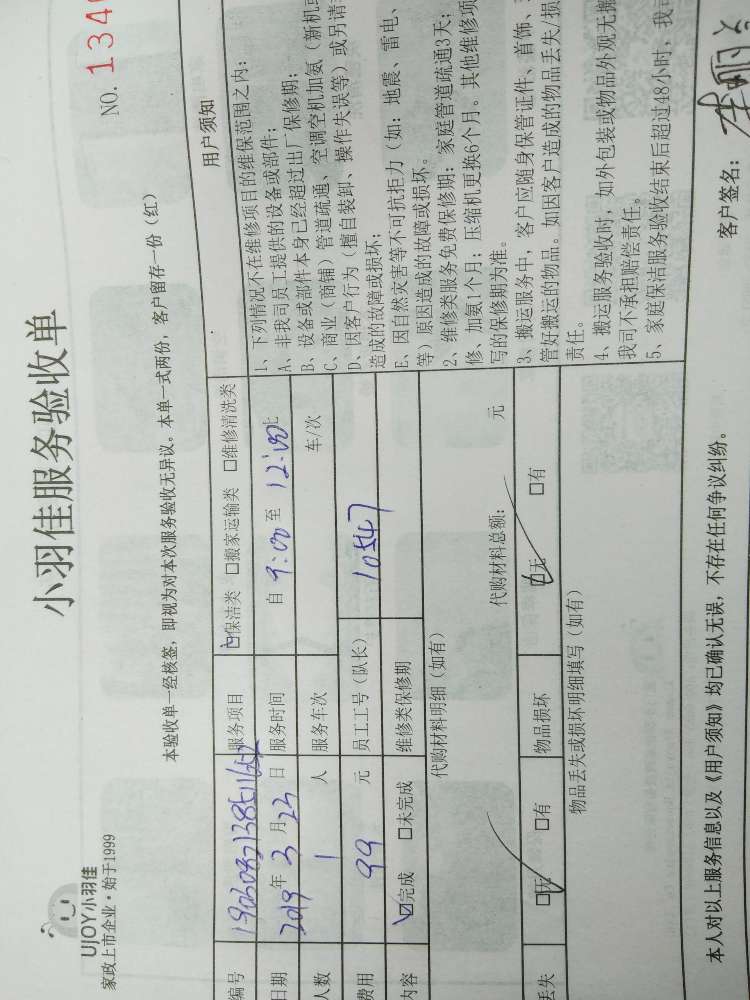 UJOY小羽佳
家政上市企业·始于1999
小羽佳服务验收单
NO. 134
本验收单一经核签，即视为对本次服务验收无异议。本单一式两份，客户留存一份（红）
编号
服务项目 ☑保洁类 □搬家运输类 □维修清洗类
日期 2019年3月23日 服务时间 自 9:00 至 12:00 止
人数 1 人 服务车次 车/次
费用 99 元 员工工号（队长） 10547
内容 ☑完成 □未完成 维修类保修期
代购材料明细（如有）
代购材料总额： 元
丢失 ☑无 □有 物品损坏 ☑无 □有
物品丢失或损坏明细填写（如有）
用户须知
1、下列情况不在维修项目的维保范围之内：
A、非我司员工提供的设备或部件；
B、设备或部件本身已经超过出厂保修期；
C、商业（商铺）管道疏通、空调空机加氨（新机或
D、因客户行为（擅自装卸、操作失误等）或另请
造成的故障或损坏；
E、因自然灾害等不可抗拒力（如：地震、雷电、
等）原因造成的故障或损坏。
2、维修类服务免费保修期：家庭管道疏通3天；
修、加氨1个月；压缩机更换6个月。其他维修项
写的保修期为准。
3、搬运服务中，客户应随身保管证件、首饰、
管好搬运的物品。如因客户造成的物品丢失/损
责任。
4、搬运服务验收时，如外包装或物品外观无
我司不承担赔偿责任。
5、家庭保洁服务验收结束后超过48小时，我
本人对以上服务信息以及《用户须知》均已确认无误，不存在任何争议纠纷。
客户签名：